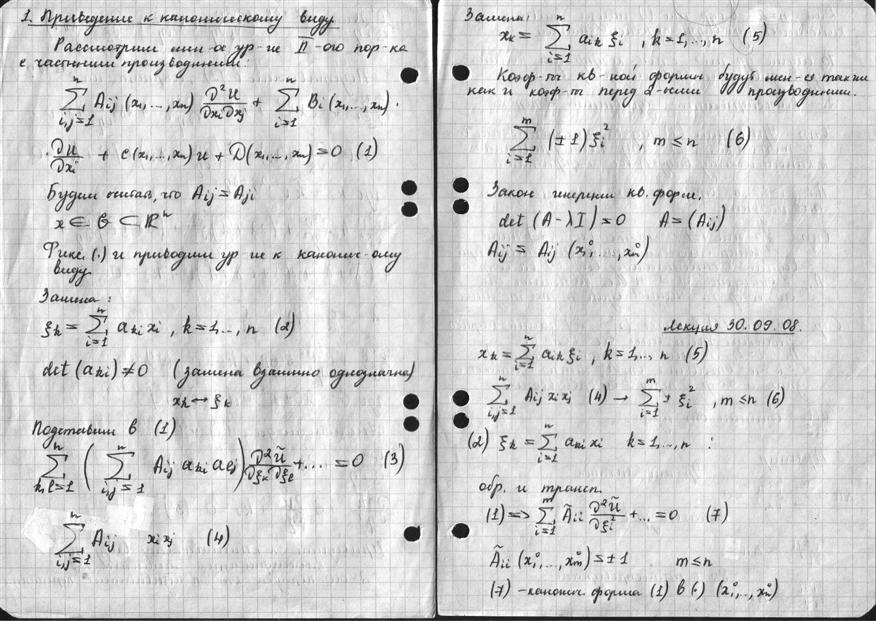 1. Приведение к каноническому виду
Рассмотрим лин-ое ур-ие II-ого пор-ка
с частными производными:
\sum_{i,j=1}^{n} A_{ij}(x_1,...,x_n) \frac{∂^2 u}{∂x_i ∂x_j} + \sum_{i=1}^{n} B_i(x_1,...,x_n) ·
· \frac{∂u}{∂x_i} + c(x_1,...,x_n) u + D(x_1,...,x_n) = 0 (1)
Будем считать, что A_{ij} = A_{ji}
x ∈ G ⊂ ℝ^n
Фикс. (·) и приводим ур-ие к канонич-ому
виду.
Замена:
ξ_k = \sum_{i=1}^{n} a_{ki} x_i, k=1,...,n (2)
det(a_{ki}) ≠ 0 (замена взаимно однозначна)
x_k ↔ ξ_k
Подставим в (1)
\sum_{k,l=1}^{n} ( \sum_{i,j=1}^{n} A_{ij} a_{ki} a_{lj} ) \frac{∂^2 ũ}{∂ξ_k ∂ξ_l} + ... = 0 (3)
\sum_{i,j=1}^{n} A_{ij} x_i x_j (4)
Замена:
x_k = \sum_{i=1}^{n} a_{ik} ξ_i, k=1,...,n (5)
Коэф-ты кв-ной формы будут мен-ся так же
как и коэф-ты перед производными.
\sum_{i=1}^{m} (±1) ξ_i^2, m ≤ n (6)
Закон инерции кв. форм.
det(A - λI) = 0 A = (A_{ij})
A_{ij} = A_{ij}(x_1^0,...,x_n^0)
Лекция 30.09.08.
x_k = \sum_{i=1}^{n} a_{ik} ξ_i, k=1,...,n (5)
\sum_{i,j=1}^{n} A_{ij} x_i x_j (4) → \sum_{i=1}^{m} ± ξ_i^2, m ≤ n (6)
(2) ξ_k = \sum_{i=1}^{n} a_{ki} x_i k=1,...,n :
обр. и трансп.
(1) => \sum_{i=1}^{m} Ã_{ii} \frac{∂^2 ũ}{∂ξ_i^2} + ... = 0 (7)
Ã_{ii}(x_1^0,...,x_n^0) = ±1 m ≤ n
(7) - канонич. форма (1) в (·) (x_1^0,...,x_n^0)